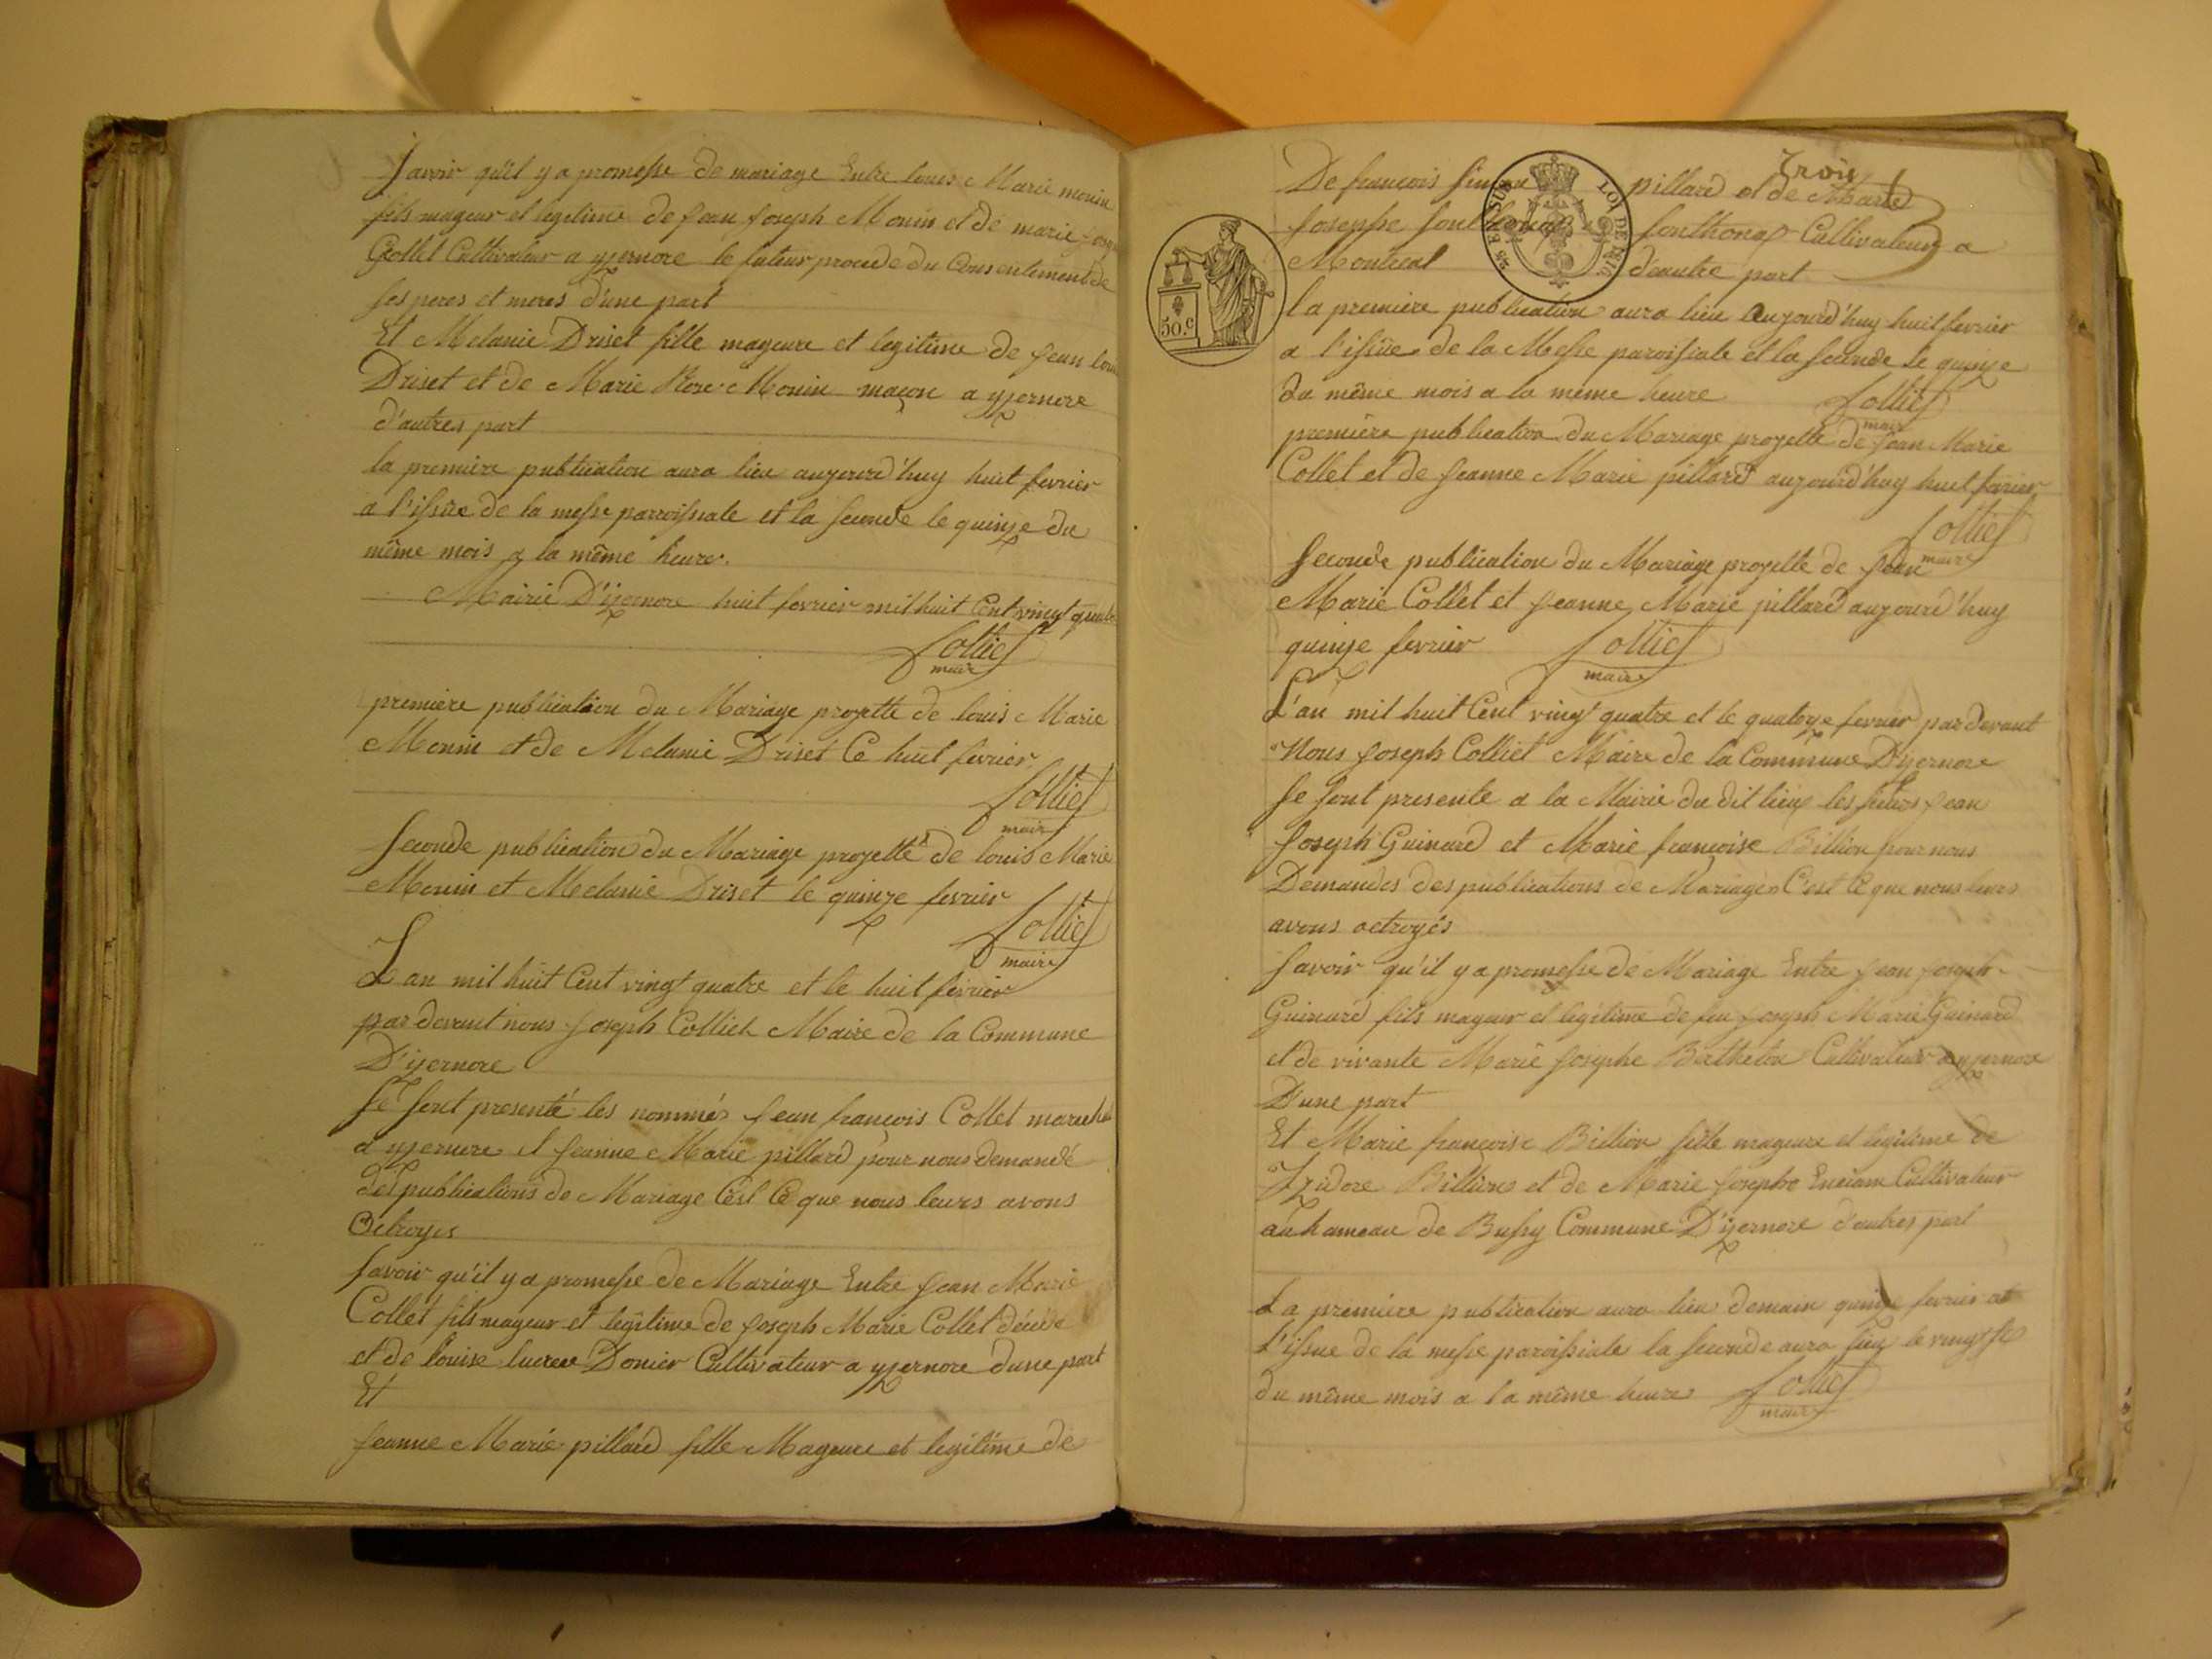 Savoir qu'il y a promesse de mariage Entre louis Marie monin
fils mageur et legetime de Jean Joseph Monin et de marie
Collet Cultivateur a yzernore le futeur procede du Consentement de
ses peres et meres d'une part
Et Melanie Driset fille mageure et legitime de Jean
Driset et de Marie Rose Monin maçon a yzernore
d'autres part
la premiere publication aura lieu aujourd'huy huit fevrier
a l'issüe de la messe parroissiale et la seconde le quinze du
même mois a la même heure.
Mairie D'yzernore huit fevrier mil huit Cent vingt quatre
Colliet
maire
premiere publication du Mariage projetté de louis Marie
Monin et de Melanie Driset Ce huit fevrier
Colliet
maire
Seconde publication du Mariage projetté de louis Marie
Monin et Melanie Driset le quinze fevrier
Colliet
maire
L'an mil huit Cent vingt quatre et le huit fevrier
par devant nous Joseph Colliet Maire de la Commune
D'yzernore
Se Sont presenté les nommés Jean françois Collet
a yzernore et Jeanne Marie pillard pour nous demandé
des publications de Mariage C'est Ce que nous leurs avons
Octroyes
Savoir qu'il y a promesse de Mariage Entre Jean Marie
Collet fils mageur et legitime de Joseph Marie Collet décédé
et de louise lucrece Donier Cultivateur a yzernore dune part
Et
Jeanne Marie pillard fille Mageure et legitime de
Trois
De françois pillard et de Marie
Josephe fonthonax Cultivateurs a
Montréal d'eautre part
50.c
LOI DE
la premiere publication aura lieu aujourd'huy huit fevrier
a l'issüe de la Messe paroissiale et la seconde le quinze
du même mois a la même heure
Colliet
maire
premiere publication du Mariage projetté de Jean Marie
Collet et de Jeanne Marie pillard aujourd'huy huit fevrier
Colliet
maire
Seconde publication du Mariage projetté de Jean
Marie Collet et Jeanne Marie pillard aujourd'huy
quinze fevrier Colliet
maire
L'an mil huit Cent vingt quatre et le quatorze fevrier par devant
Nous Joseph Colliet Maire de la Commune D'yzernore
Se sont presente a la Mairie du dit lieux les futurs Jean
Joseph Guinard et Marie francoise Billion pour nous
Demandés des publications de Mariages C'est Ce que nous leurs
avons octroyés
Savoir qu'il y a promesse de Mariage Entre Jean Joseph
Guinard fils mageur et legitime de feu Joseph Marie Guinard
et de vivante Marie Josephe Berthelon Cultivateur a yzernore
D'une part
Et Marie françoise Billion fille mageure et legitime de
Izidore Billion et de Marie Josephe Cultivateur
au hameau de Bussy Commune D'yzernore d'autres part
La première publication aura lieu demain quinze fevrier a
l'issue de la messe paroissiale la seconde aura lieu le vingt
du même mois a la même heure Colliet
maire